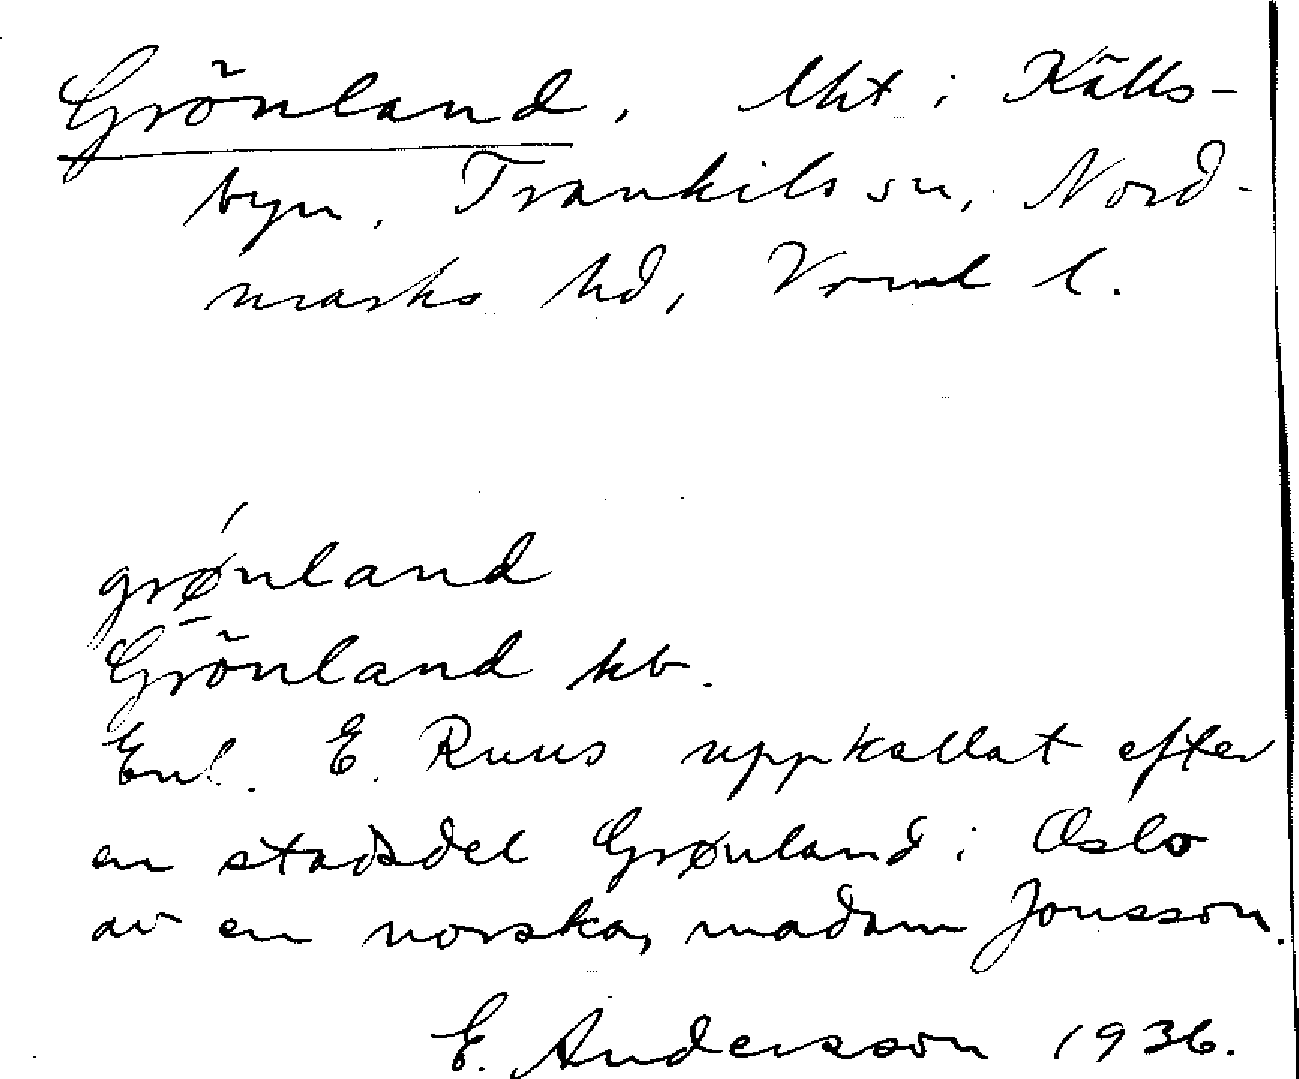 Grönland, lht i Källs-
byn, Trankils sn, Nord-
marks hd, Vrml l.
grǿ̱nland
Grönland kb.
Enl. E. Ruus uppkallat efter
en stadsdel Grønland i Oslo
av en norska, madam Jonsson.
E. Andersson 1936.